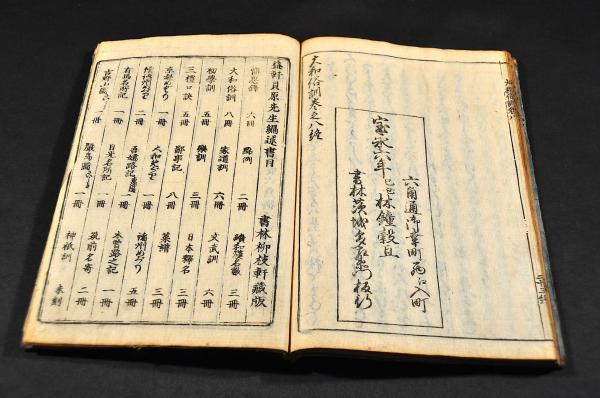 六角通御幸町西江入町
寶永六年己丑林鐘穀旦
書林茨城多左衞門板行
大和俗訓巻之八終
益軒貝原先生編述書目 書林柳枝軒藏版
愼思録 六冊 點例 二冊 續和漢名數 三冊
大和俗訓 八冊 家道訓 六冊 文武訓 六冊
初學訓 五冊 樂訓 三冊 日本釋名 三冊
三禮口訣 五冊 鄙事記 八冊 菜譜 三冊
京都めぐり 一冊 大和めぐり 一冊 諸州めぐり 五冊
二冊 吾嬬路記 一冊 木曽路之記 二冊
有馬名所記 一冊 日光名所記 一冊 筑前名寄 二冊
吉野山圖 一冊 嚴島圖 一冊 神祇訓 未刻